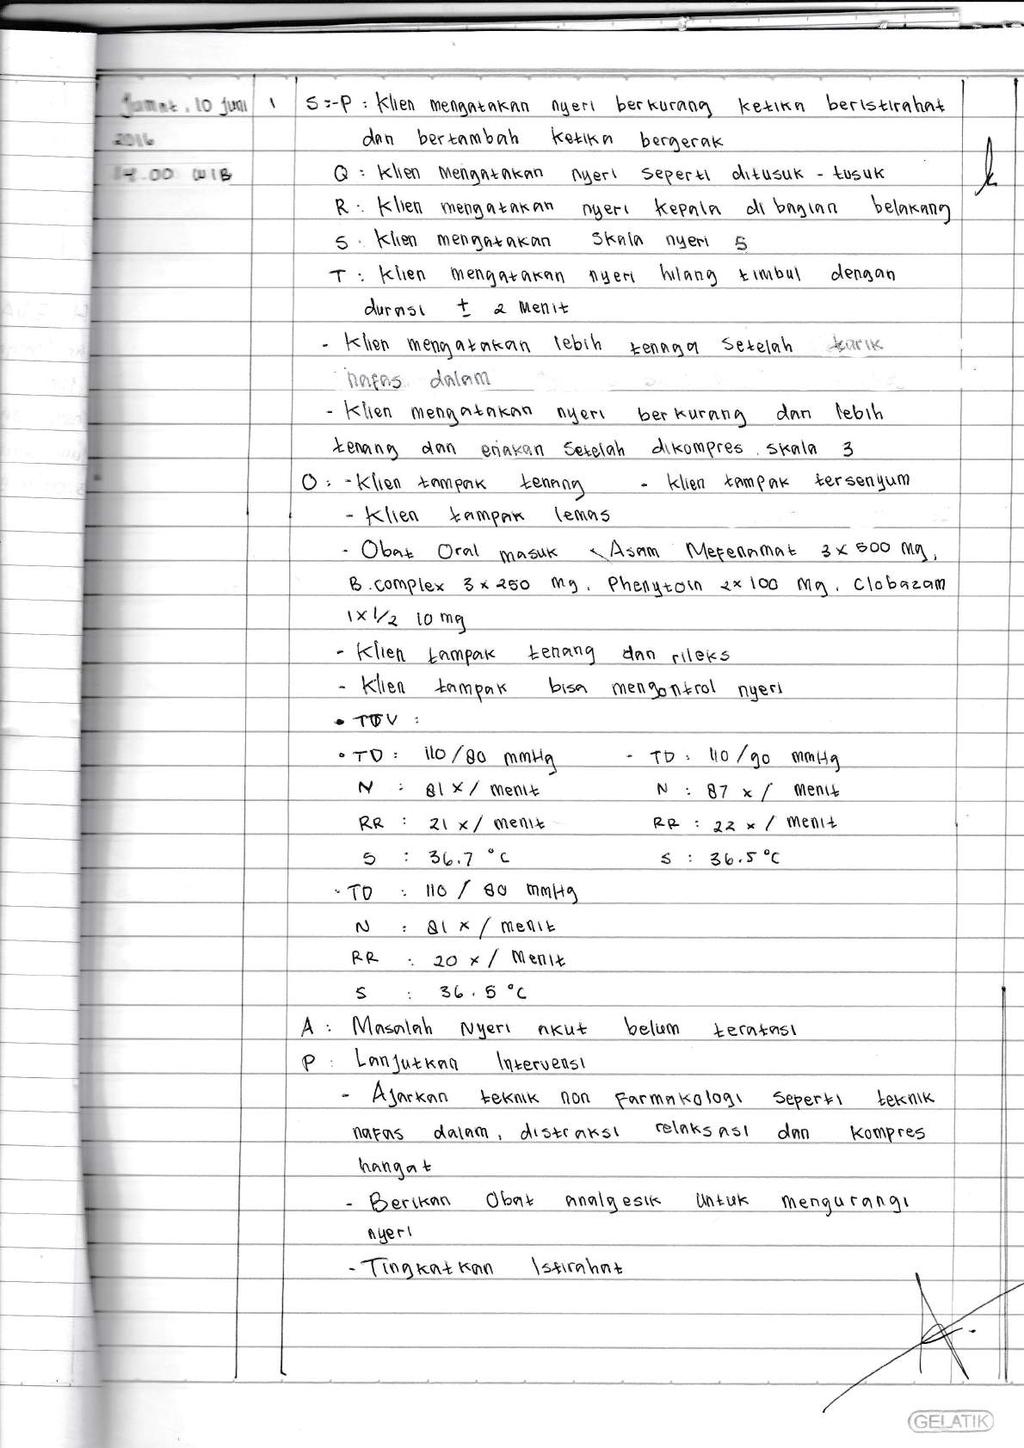 Jumat, 10 Juni 1 S :- P : Klien mengatakan nyeri berkurang ketika beristirahat
2016 dan bertambah ketika bergerak
14.00 WIB Q : Klien Mengatakan nyeri seperti ditusuk - tusuk
R : Klien mengatakan nyeri kepala di bagian belakang
S : Klien mengatakan skala nyeri 5
T : Klien mengatakan nyeri hilang timbul dengan
durasi ± 2 Menit
- Klien mengatakan lebih tenaga setelah tarik
nafas dalam
- Klien mengatakan nyeri berkurang dan lebih
tenang dan enakan setelah dikompres. skala 3
O : - Klien tampak tenang - Klien tampak tersenyum
- Klien tampak lemas
- Obat Oral masuk Asam Mefenamat 3 x 500 Mg,
B.complex 3 x 250 Mg, Phenytoin 2x 100 Mg, Clobazam
1x 1/2 10 mg
- Klien tampak tenang dan rileks
- Klien tampak bisa mengontrol nyeri
• TTV :
• TD : 110/80 mmHg - TD : 110/90 mmHg
N : 81 x / menit N : 87 x / Menit
RR : 21 x / menit RR : 22 x / Menit
S : 36.7 °C S : 36.5 °C
- TD : 110 / 80 mmHg
N : 81 x / menit
RR : 20 x / Menit
S : 36.5 °C
A : Masalah Nyeri akut belum teratasi
P : Lanjutkan Intervensi
- Ajarkan teknik non Farmakologi Seperti teknik
nafas dalam, distraksi relaksasi dan Kompres
hangat
- Berikan Obat analgesik Untuk mengurangi
nyeri
- Tingkatkan Istirahat
GELATIK